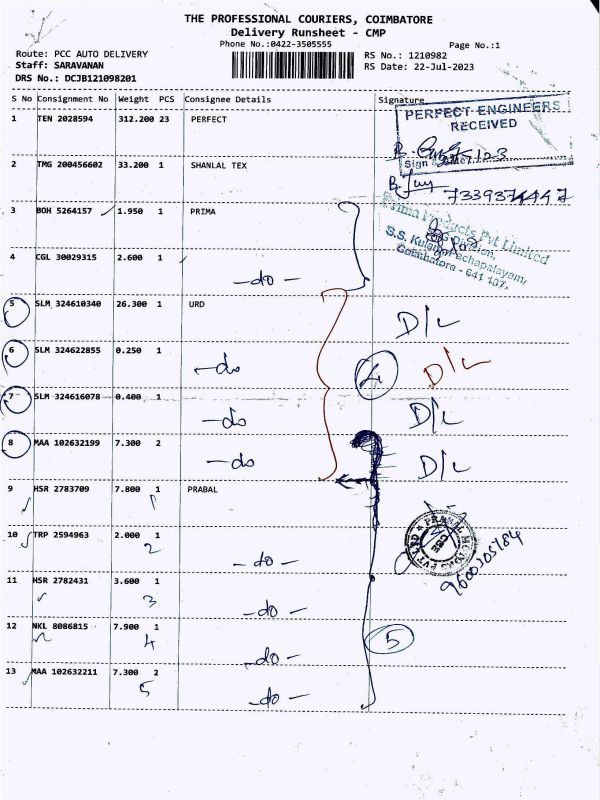 THE PROFESSIONAL COURIERS, COIMBATORE
Delivery Runsheet - CMP
Phone No.:0422-3505555
Page No.:1
Route: PCC AUTO DELIVERY
Staff: SARAVANAN
DRS No.: DCJB121098201
RS No.: 1210982
RS Date: 22-Jul-2023
S No Consignment No Weight PCS Consignee Details Signature
1 TEN 2028594 312.200 23 PERFECT
PERFECT ENGINEERS
RECEIVED
Sign
2 TMG 200456602 33.200 1 SHANLAL TEX
7339374447
3 BOH 5264157 1.950 1 PRIMA
Prima Products Pvt Limited
S.S. Kulam Pachapalayam,
Coimbatore - 641 107.
4 CGL 30029315 2.600 1
-do-
5 SLM 324610340 26.300 1 URD D/L
6 SLM 324622855 0.250 1 -do D/L
4
7 SLM 324616078 0.400 1 -do D/L
8 MAA 102632199 7.300 2 -do D/L
9 HSR 2783709 7.800 1 PRABAL
1
10 TRP 2594963 2.000 1
2 -do-
9600305984
11 HSR 2782431 3.600 1
3 -do-
12 NKL 8086815 7.900 1
4 -do-
5
13 MAA 102632211 7.300 2
5 -do-